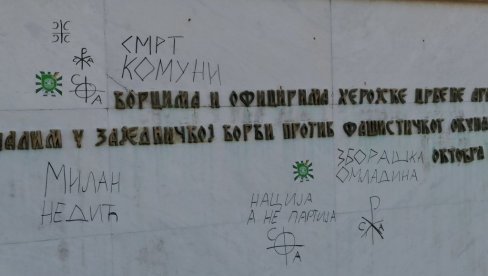 СМРТ
КОМУНИ
БОРЦИМА И ОФИЦИРИМА ХЕРОЈСКЕ ЦРВЕНЕ
ЗАЈЕДНИЧКОЈ БОРБИ ПРОТИВ ФАШИСТИЧКОГ
ОКТОБРА
ЗБОРАШКА
ОМЛАДИНА
МИЛАН
НЕДИЋ
НАЦИЈА
А НЕ ПАРТИЈА